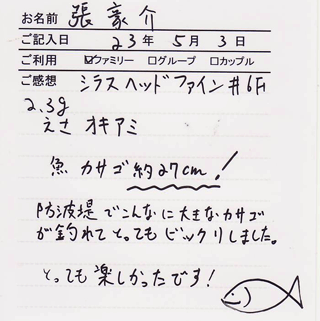 お名前 張 豪介
ご記入日 23年 5月 3日
ご利用 ☑ファミリー □グループ □カップル
ご感想 シラスヘッドファイン #6F
2.3g
えさ オキアミ
魚 カサゴ 約27cm!
防波堤でこんなに大きなカサゴ
が釣れてとってもビックリしました。
とっても楽しかったです!